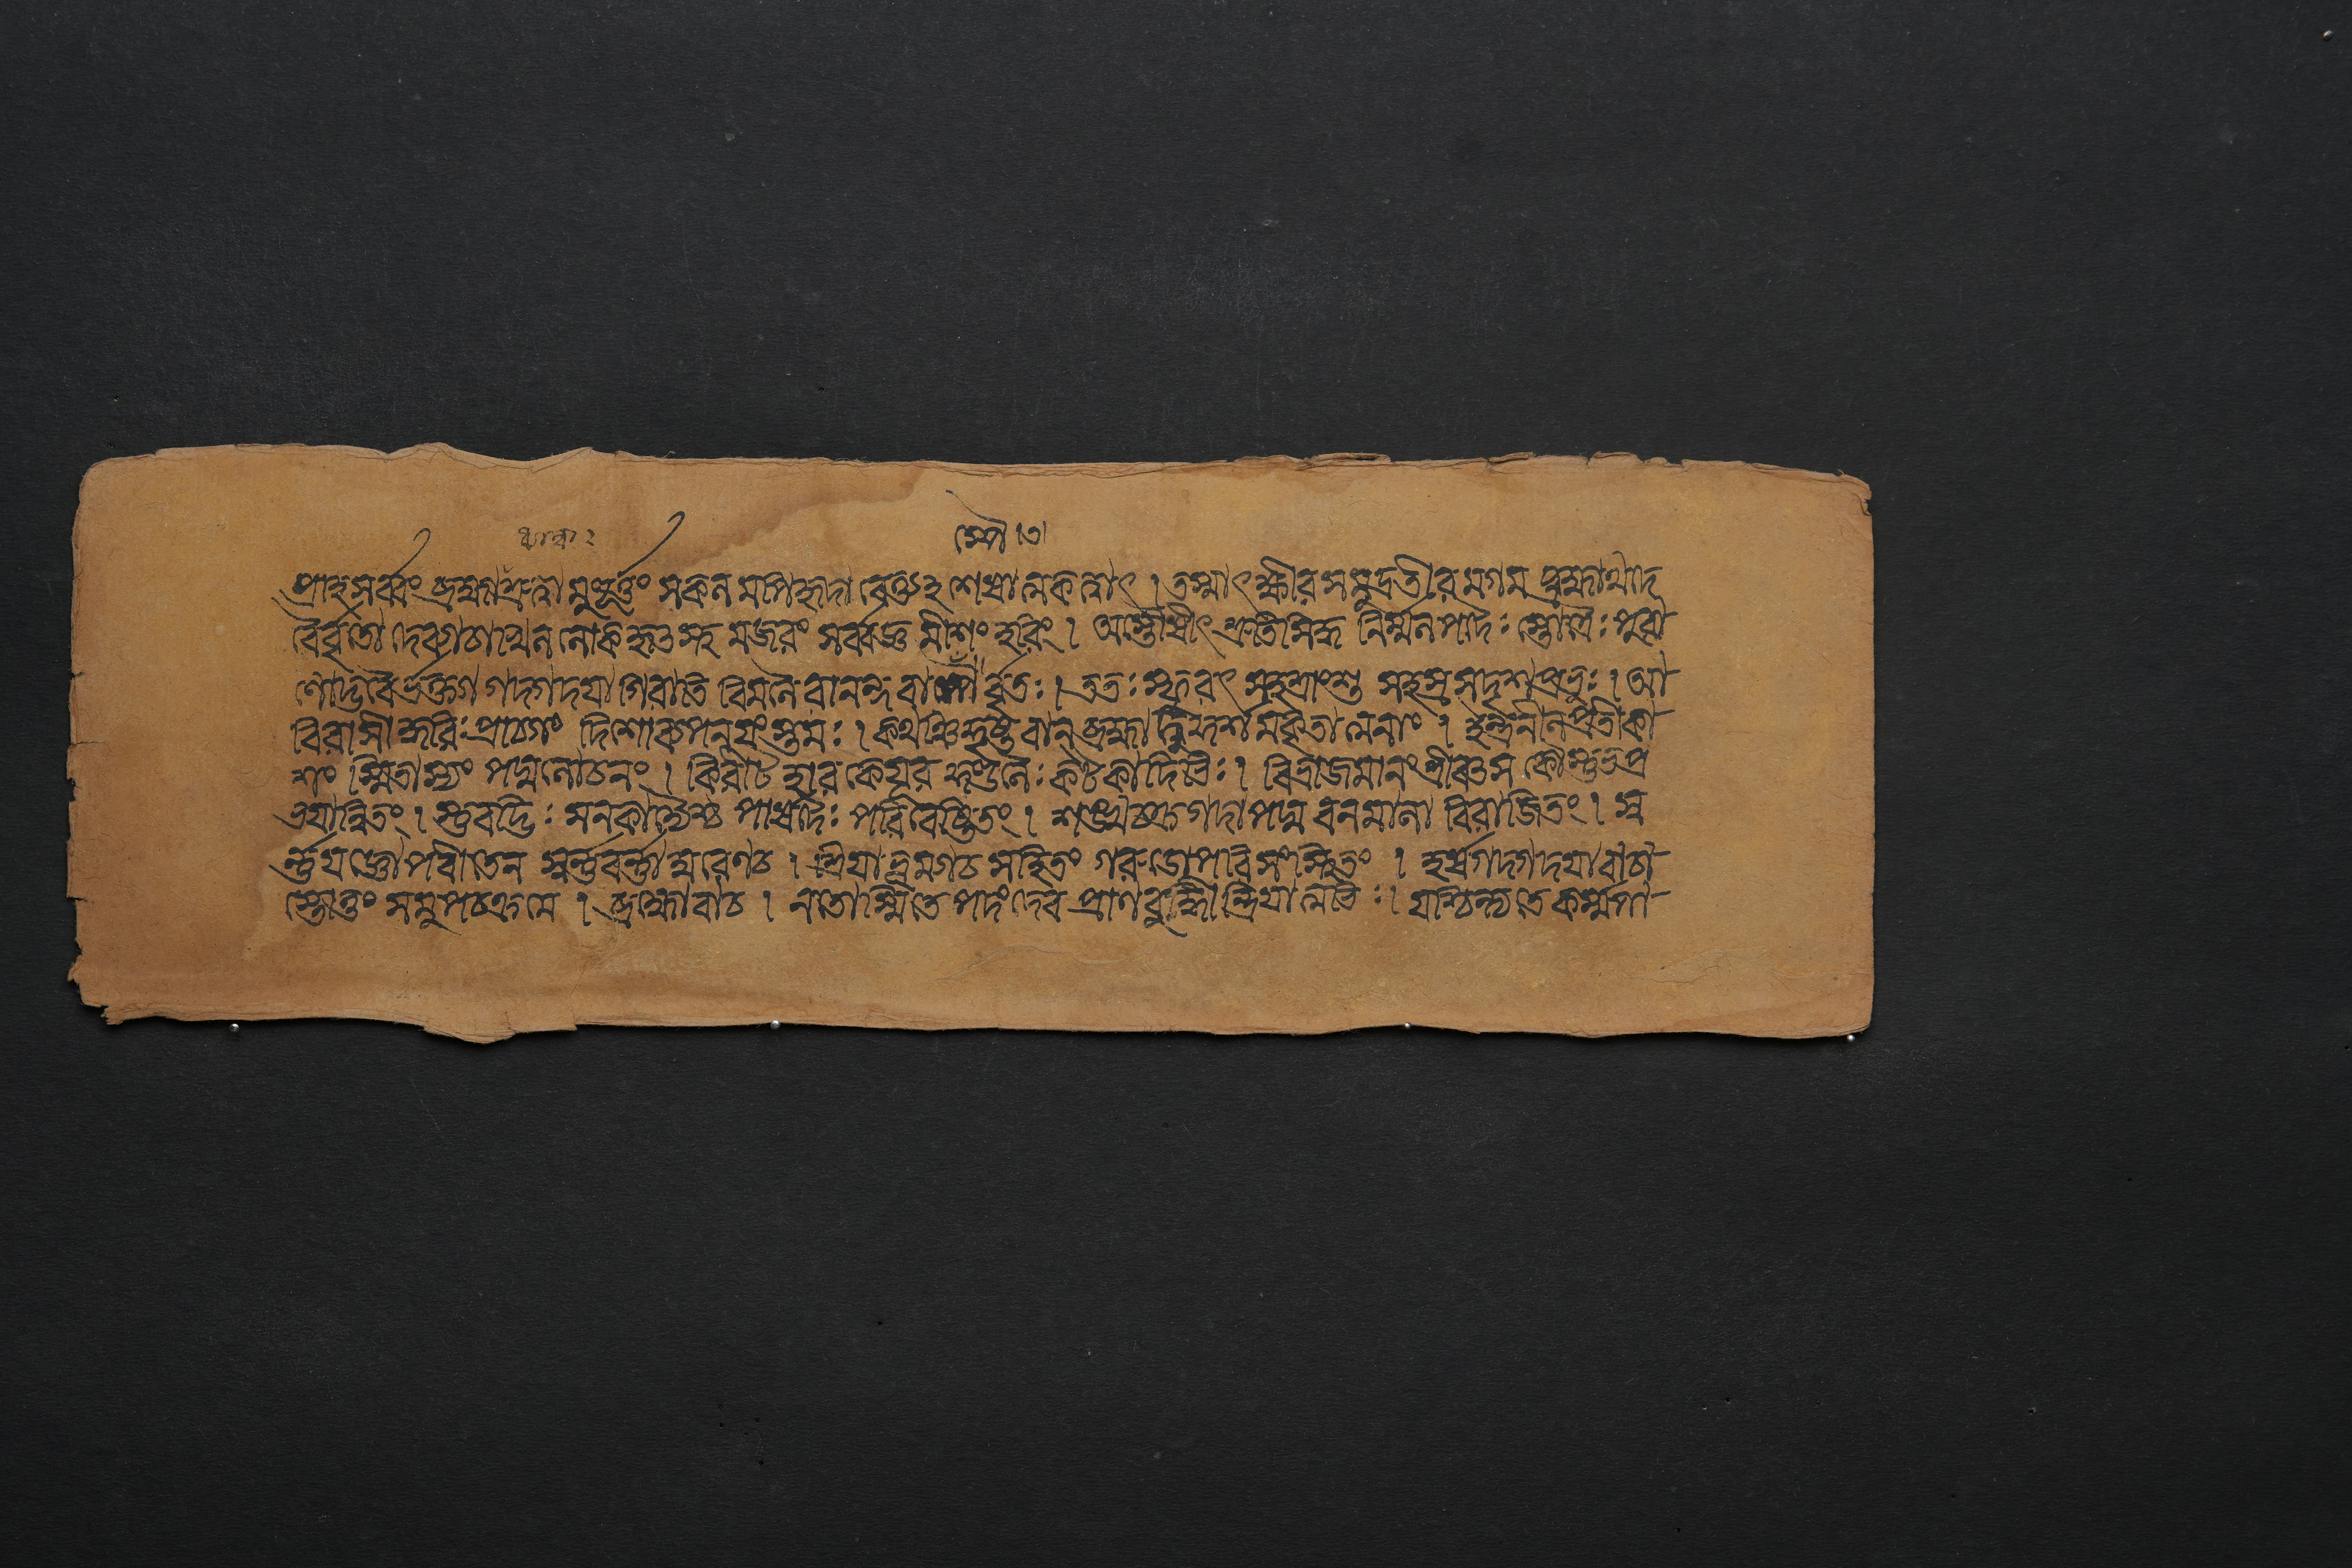 প্রাহ সর্ব্বং ব্রহ্মা ধ্যাত্বা মুহূর্ত্তং সকলমপি হৃদাবেত্তুহশেষাত্মকত্বাৎ । তস্মাৎ ক্ষীরসমুদ্রতীরমগম ব্রহ্মাথ দে
বৈর্বৃতো দেব্যাচাখিললোকহৃৎস্থমজরং সর্ব্বজ্ঞমীশং হরিং । অস্তৌষীৎ শ্রুতিসিদ্ধ নির্ম্মলপদৈঃ স্তোত্রৈঃ পুরা
ণোদ্ভবৈর্ভক্ত্যা গদ্গদয়া গিরাতিবিমলৈরানন্দবাষ্পৈর্বৃতঃ । ততঃ স্ফুরৎ সহস্রাংশু সহস্রসদৃশপ্রভঃ । আ
বিরাসীদ্ধরিঃ প্রাচ্যাং দিশাং ব্যপনয়ংস্তমঃ । কথঞ্চিদ্দৃষ্টবান্ ব্রহ্মা দুর্দ্দর্শমকৃতাত্মনাং । ইন্দ্রনীলপ্রতীকা
শং স্মিতাস্যং পদ্মলোচনং । কিরীটহারকেয়ূরকুণ্ডলৈঃ কটকাদিভিঃ । বিভ্রাজমানং শ্রীবৎস কৌস্তুভপ্র
ভয়ান্বিতং । স্তুবদ্ভিঃ সনকাদ্যৈশ্চ পার্ষদৈঃ পরিবেষ্টিতং । শঙ্খচক্রগদাপদ্ম বনমালা বিরাজিতং । স্ব
র্ণযজ্ঞোপবীতেন স্বর্ণবর্ণাম্বরেণ চ । শ্রিয়া ভূম্যা চ সহিতং গরুডোপরি সংস্থিতং । হর্ষগদ্গদয়া বাচা
স্তোতুং সমুপচক্রমে । ব্রহ্মোবাচ । নতোস্মি তে পদং দেব প্রাণবুদ্ধীন্দ্রিয়াত্মভিঃ । যচ্চিন্ত্যতে কর্ম্মপা